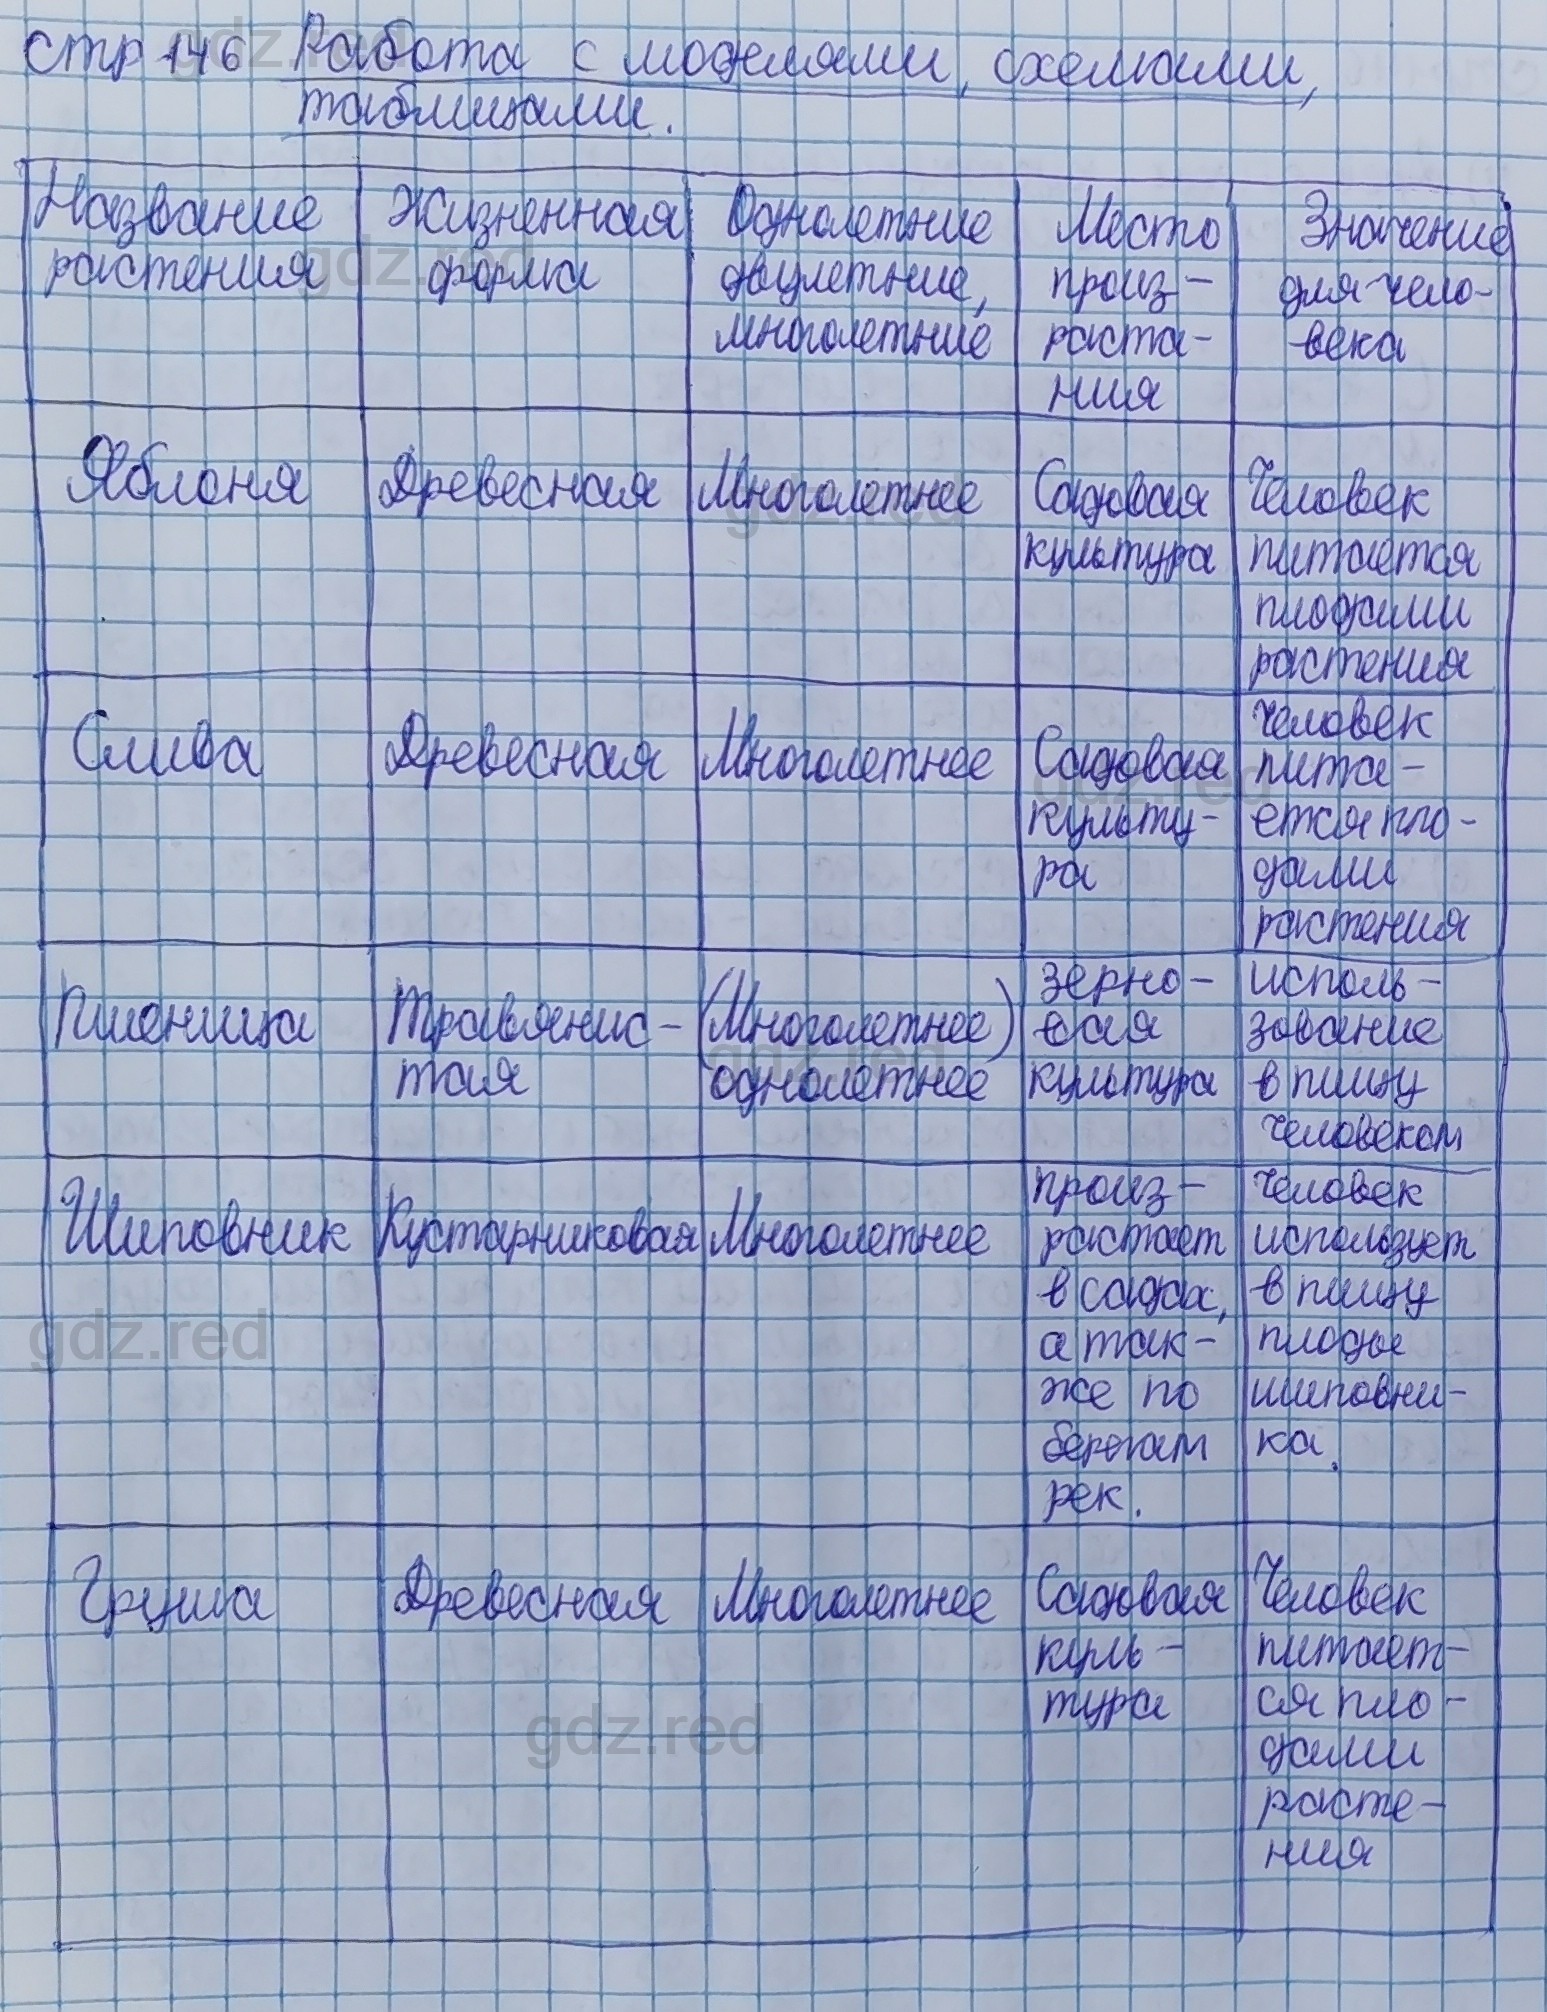 стр 146 Работа с моделями, схемами,
таблицами.
Название
растения
Жизненная
форма
Однолетние
двулетние,
многолетние
Место
произ-
раста-
ния
Значение
для чело-
-века
Яблоня
Древесная
Многолетнее
Садовая
культура
Человек
питается
плодами
растения
Слива
Древесная
Многолетнее
Садовая
культу-
ра
Человек
пита-
ется пло-
дами
растения
Пшеница
Травянис-
тая
(Многолетнее)
однолетнее
зерно-
вая
культура
исполь-
зование
в пищу
человеком
Шиповник
Кустарниковая
Многолетнее
произ-
растает
в садах,
а так-
же по
берегам
рек.
Человек
использует
в пищу
плоды
шиповни-
ка.
Груша
Древесная
Многолетнее
Садовая
куль-
тура
Человек
питает-
ся пло-
дами
расте-
ния
gdz.red
gdz.red
gdz.red
gdz.red
gdz.red
gdz.red
gdz.red